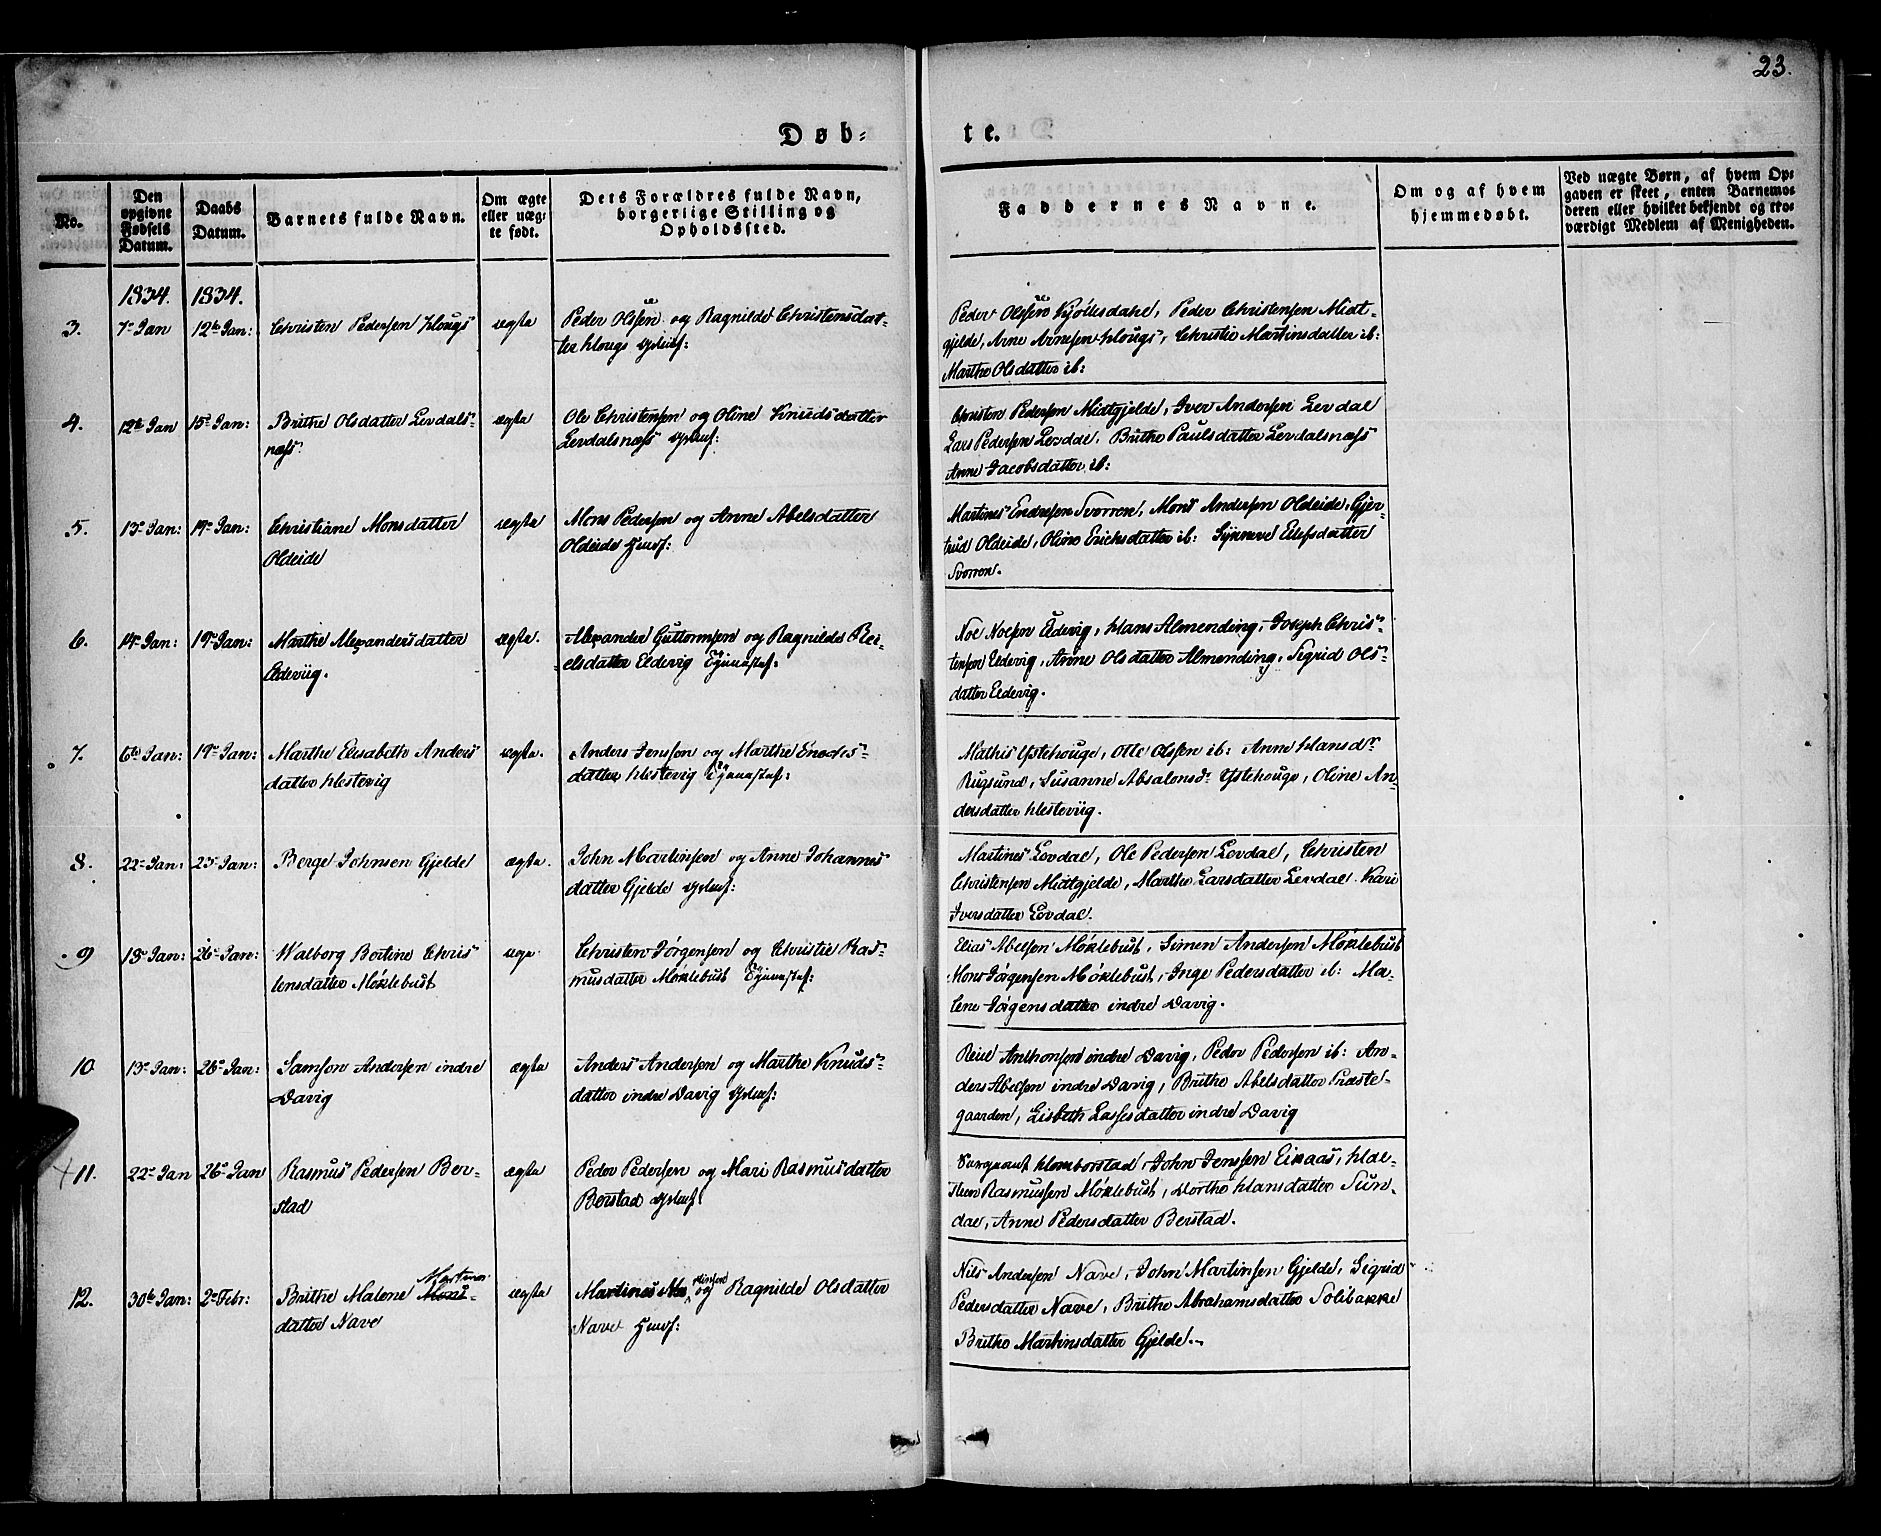 23.
Døb-
te.
No.
Den opgivne Fødsels Datum.
Daabs Datum.
Barnets fulde Navn.
Om ægte eller uægte født.
Dets Forældres fulde Navn, borgerlige Stilling og Opholdssted.
Faddernes Navne.
Om og af hvem hjemmedøbt.
Ved uægte Børn, af hvem Opgaven er skeet, enten Barnemoderen eller hvilket bekjendt og troværdigt Medlem af Menigheden.
1834. 1834.
3. 7de Jan 12te Jan: Christen Pedersen Hougs ægte
Peder Olssen og Ragnilde Christensdat-
ter Hougs
Peder Olssen Kjöllesdahl, Peder Christensen Midt-
gjelde, Arne Arnesen Hougs, Christie Martinsdatter ib:
Marthe Olsdatter ib:
4. 12te Jan 15de Jan: Brithe Olsdatter Levdals-
næss. ægte
Ole Christensen og Oline Knudsdatter
Levdalsnæss
Christen Pedersen Midtgjelde, Iver Andersen Levdal
Lars Pedersen Levdal, Brithe Paulsdatter Levdalsnæss
Anne Jacobsdatter ib:
5. 13de Jan: 19de Jan: Christiane Monsdatter
Oldeide ægte
Mons Pedersen og Anne Abelsdatter
Oldeide
Martines Endresen Svorren, Mons Andersen Oldeide, Gjer-
trud Oldeide, Oline Erichsdatter ib: Synneve Elefsdatter
Svorren.
6. 14de Jan: 19de Jan: Marthe Alexandersdatter
Eldeviig. ægte.
Alexander Guttormsen og Ragnilde Rei-
elsdatter Eldevig
Noe Noesen Eldevig, Hans Almending, Joseph Chris-
tensen Eldevig, Anne Olsdatter Almending, Sigrid Ols-
datter Eldevig.
7. 6te Jan: 19de Jan: Marthe Elisabeth Anders
datter Hestevig ægte.
Anders Jensson og Marthe Enochs-
datter Hestevig
Mathis Ystehouge, Otte Olssen ib: Anne Hansdr
Rugsund, Susanne Absalonsdr Ystehouge, Oline An-
dersdatter Hesteviig.
8. 22de Jan: 25de Jan: Berge Johnsen Gjelde ægte.
John Martinsen og Anne Johannes
datter Gjelde
Martines Levdal, Ole Pedersen Levdal, Christen
Christensen Midtgjelde, Marthe Larsdatter Levdal. Kari
Iversdatter Levdal.
9 18de Jan: 26de Jan: Walborg Bertine Chris-
tensdatter Möklebust
Christen Jörgensen og Christie Ras-
musdatter Möklebust
Elias Abelsen Möklebust, Simen Andersen Möklebust
Mons Jörgensen Möklebust, Inge Pedersdatter ib: Ma-
lene Jörgensdatter indre Davig.
10 13de Jan: 26de Jan: Samson Andersen indre
Davig ægte
Anders Andersen og Marthe Knuds-
datter indre Davig
Reiel Anthonsen indre Davig, Peder Pedersen ib: An-
ders Abelsen indre Davig, Brithe Abelsdatter Præste-
gaarden, Lisbeth Lassesdatter indre Davig
11. 22de Jan 26de Jan Rasmus Pedersen Ber-
stad ægte
Peder Pedersen og Mari Rasmusdatter
Berstad
Sergeant Homborstad, John Jenssen Einaas, Hal-
steen Rasmussen Möklebust, Dorthe Hansdatter Sün-
dal, Anne Pedersdatter Berstad.
12. 30te Jan: 2den Febr: Brithe Malene Mons- Martines
datter Nave ægte
Martinus Martinsen og Ragnilde Olsdatter
Nave
Nils Andersen Nave, John Martinsen Gjelde, Sigrid
Pedersdatter Nave, Brithe Abrahamsdatter Solibakke
Brithe Martinsdatter Gjelde.